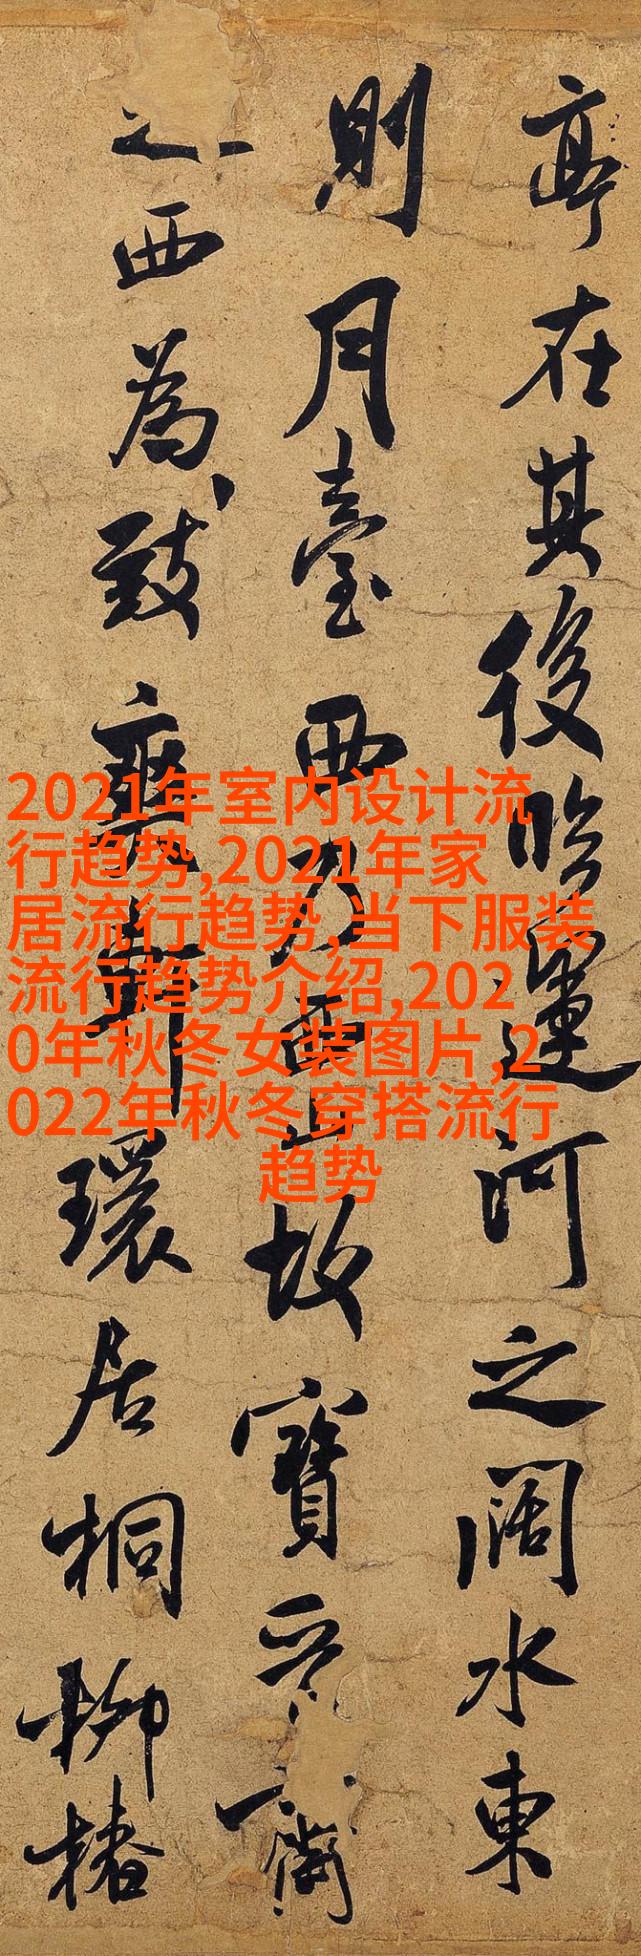 亭在其後臨運河之闊水東
則月臺西乃西山故寶晉齋
之西為致爽軒環居桐柳椿
2021年室内设计流
行趋势,2021年家
居流行趋势,当下服装
流行趋势介绍,202
0年秋冬女装图片,2
022年秋冬穿搭流行
趋势